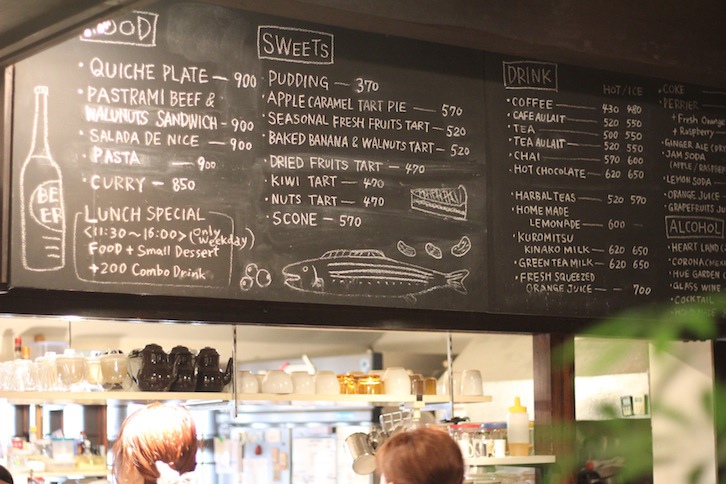 FOOD
· QUICHE PLATE — 900
· PASTRAMI BEEF &
WALUNUTS SANDWICH - 900
· SALADA DE NICE — 900
· PASTA — 900
· CURRY — 850
LUNCH SPECIAL
<11:30~16:00> (only weekday)
FOOD + Small Dessert
+200 Combo Drink
BEER
SWEETS
· PUDDING — 370
· APPLE CARAMEL TART PIE — 570
· SEASONAL FRESH FRUITS TART — 520
· BAKED BANANA & WALNUTS TART — 520
· DRIED FRUITS TART — 470
· KIWI TART — 470
· NUTS TART — 470
· SCONE — 570
DRINK
HOT/ICE
· COFFEE — 430 480
· CAFE AU LAIT — 520 550
· TEA — 500 550
· TEA AU LAIT — 520 550
· CHAI — 570 600
· HOT CHOCOLATE — 620 650
· HARBAL TEAS — 520 570
· HOMEMADE
LEMONADE — 600
· KUROMITSU
KINAKO MILK — 620 650
· GREEN TEA MILK — 620 650
· FRESH SQUEEZED
ORANGE JUICE — 700
· COKE
· PERRIER
+ Fresh Orange
+ Raspberry
· GINGER ALE
· JAM SODA
(APPLE/
· LEMON SODA
· ORANGE JUICE
· GRAPEFRUITS
ALCOHOL
· HEART LAND
· CORONA
· HUE GARDEN
· GLASS WINE
· COCKTAIL